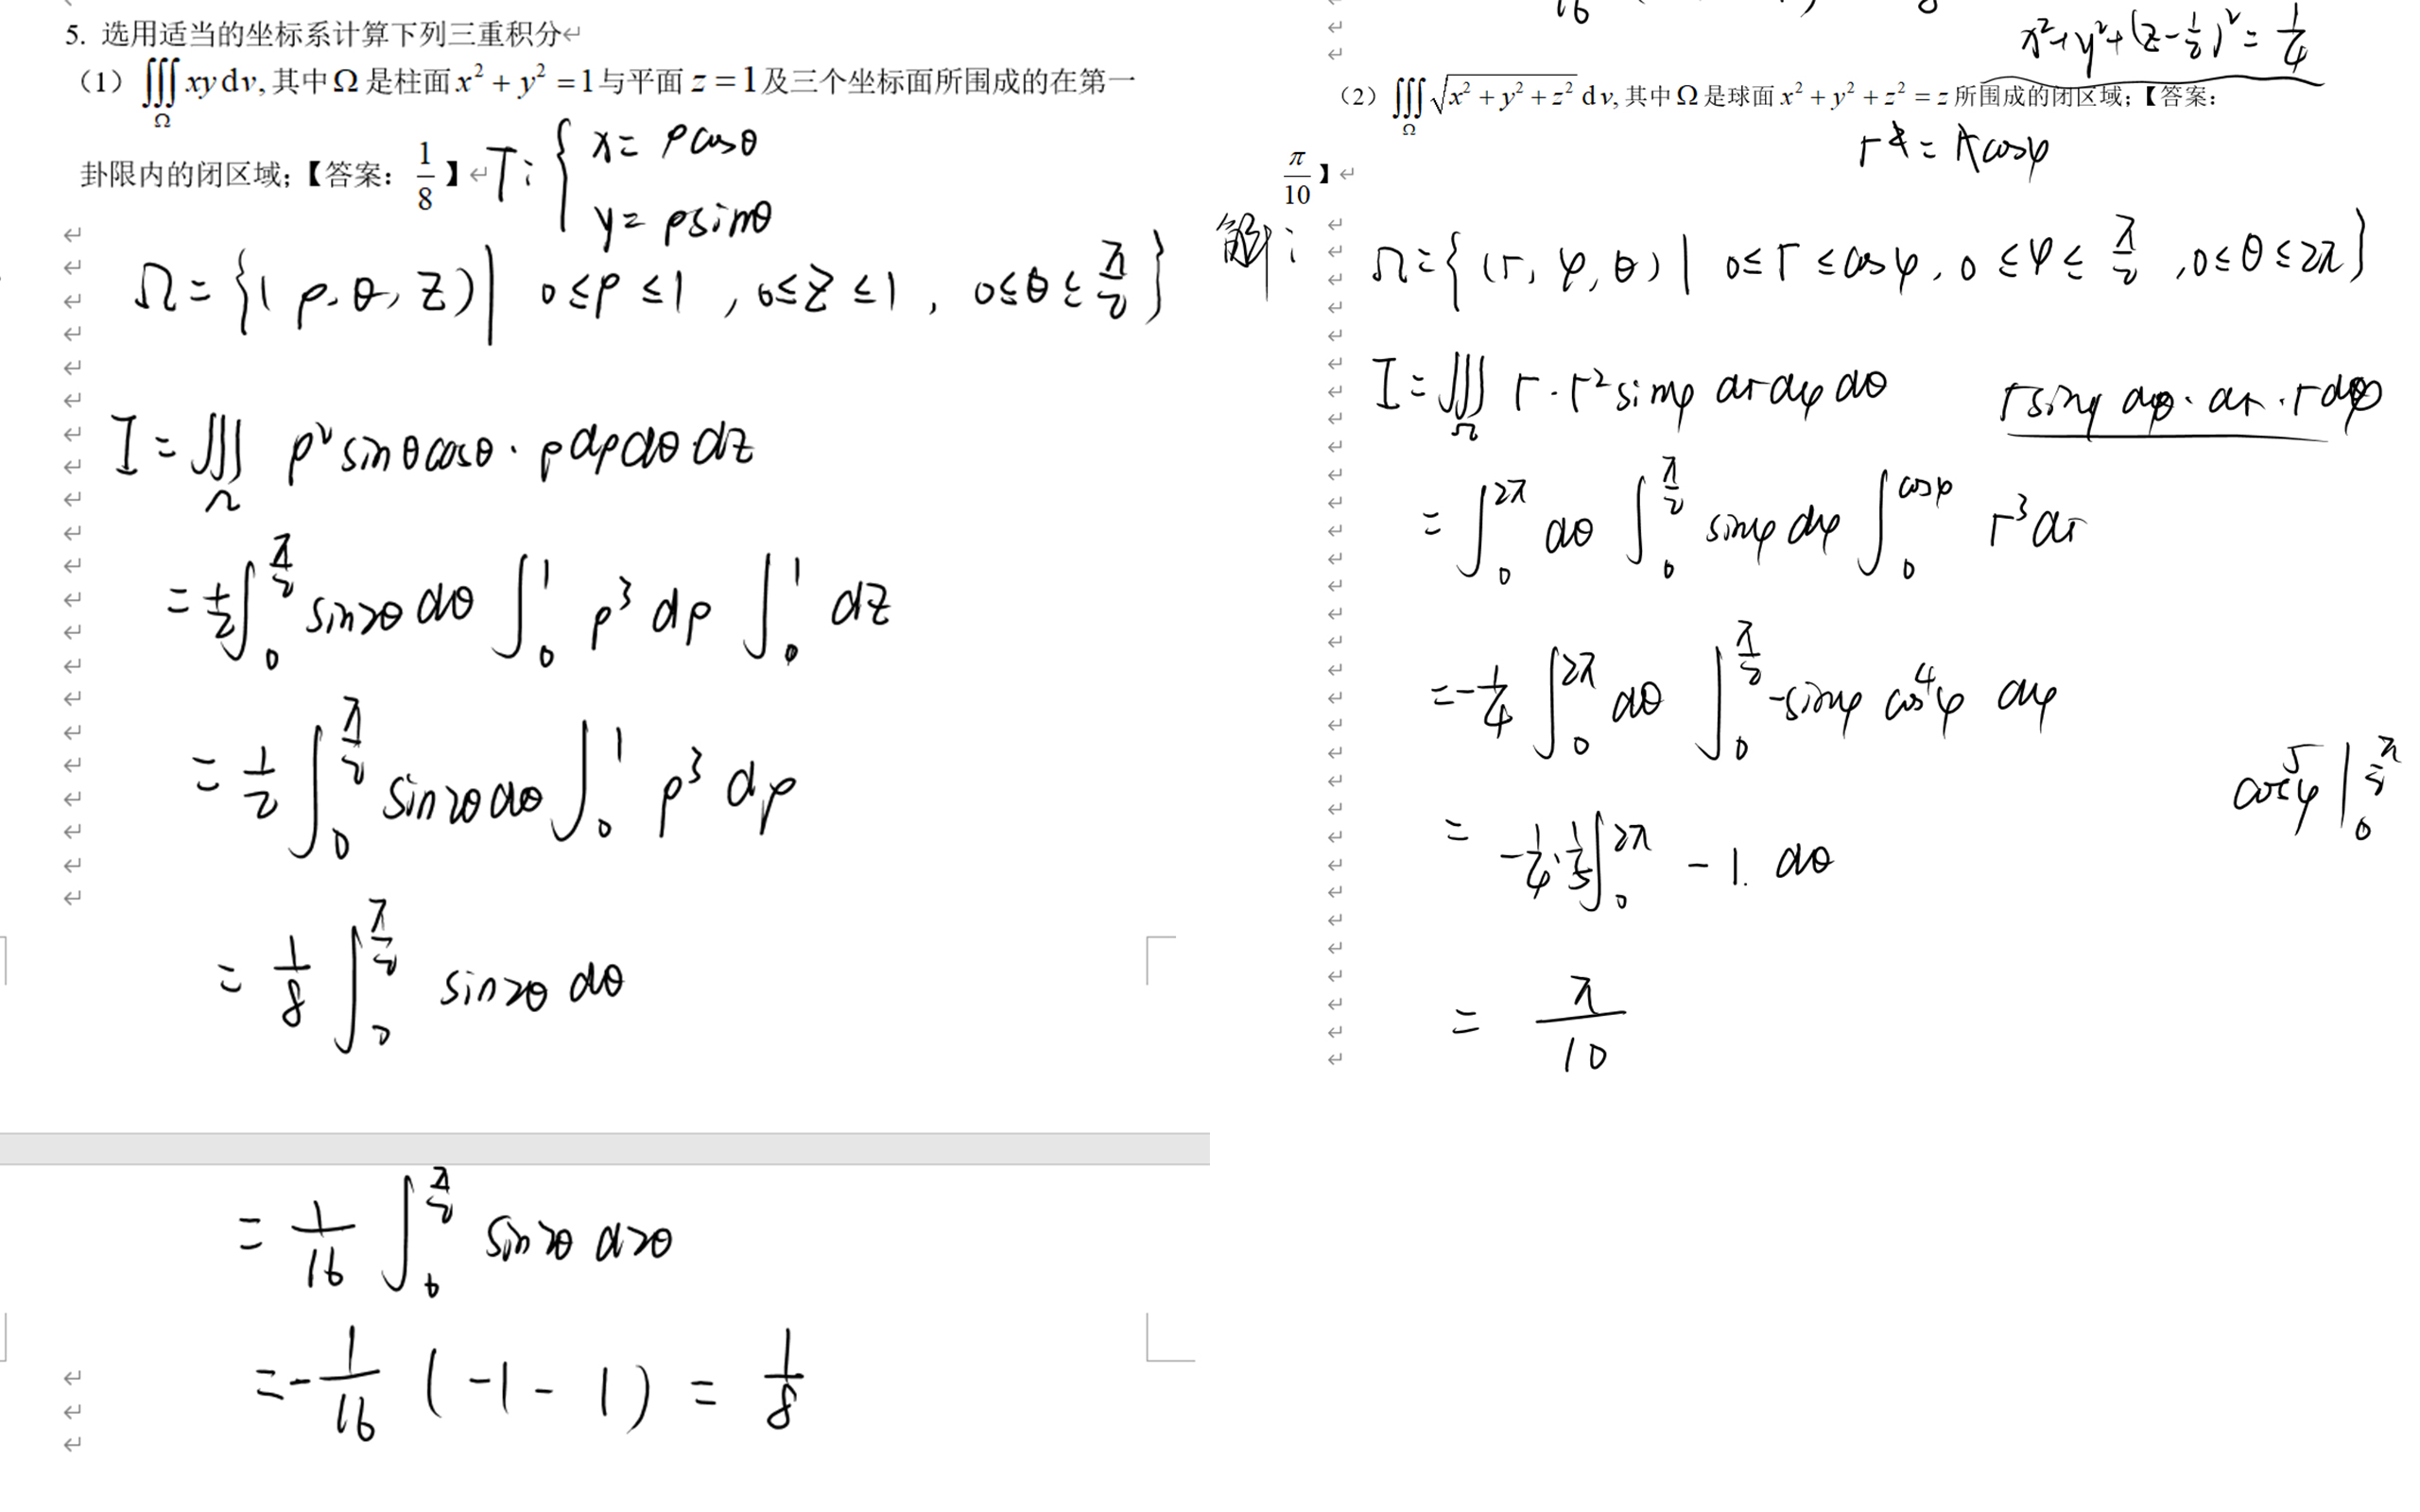 5. 选用适当的坐标系计算下列三重积分
(1) ∭_Ω xy dv, 其中 Ω 是柱面 x² + y² = 1 与平面 z = 1 及三个坐标面所围成的在第一
卦限内的闭区域;【答案: 1/8】 T: { x = ρcosθ
y = ρsinθ
Ω = {(ρ, θ, z) | 0≤ρ≤1, 0≤z≤1, 0≤θ≤π/2}
I = ∭_Ω ρ² sinθcosθ · ρdρdθdz
= 1/2 ∫_0^{π/2} sin2θ dθ ∫_0^1 ρ³ dρ ∫_0^1 dz
= 1/2 ∫_0^{π/2} sin2θ dθ ∫_0^1 ρ³ dρ
= 1/8 ∫_0^{π/2} sin2θ dθ
= 1/16 ∫_0^{π/2} sin2θ d2θ
= -1/16 (-1-1) = 1/8
16
x²+y²+(z-1/2)² = 1/4
(2) ∭_Ω √(x² + y² + z²) dv, 其中 Ω 是球面 x² + y² + z² = z 所围成的闭区域;【答案:
π/10】
r² = r cosφ
解: Ω = {(r, φ, θ) | 0≤r≤cosφ, 0≤φ≤π/2, 0≤θ≤2π}
I = ∭_Ω r·r² sinφ dr dφ dθ
rsinφ dθ · dr · r dφ
= ∫_0^{2π} dθ ∫_0^{π/2} sinφ dφ ∫_0^{cosφ} r³ dr
= -1/4 ∫_0^{2π} dθ ∫_0^{π/2} -sinφ cos⁴φ dφ
cos⁵φ |_0^{π/2}
= -1/4 · 1/5 ∫_0^{2π} -1. dθ
= π/10